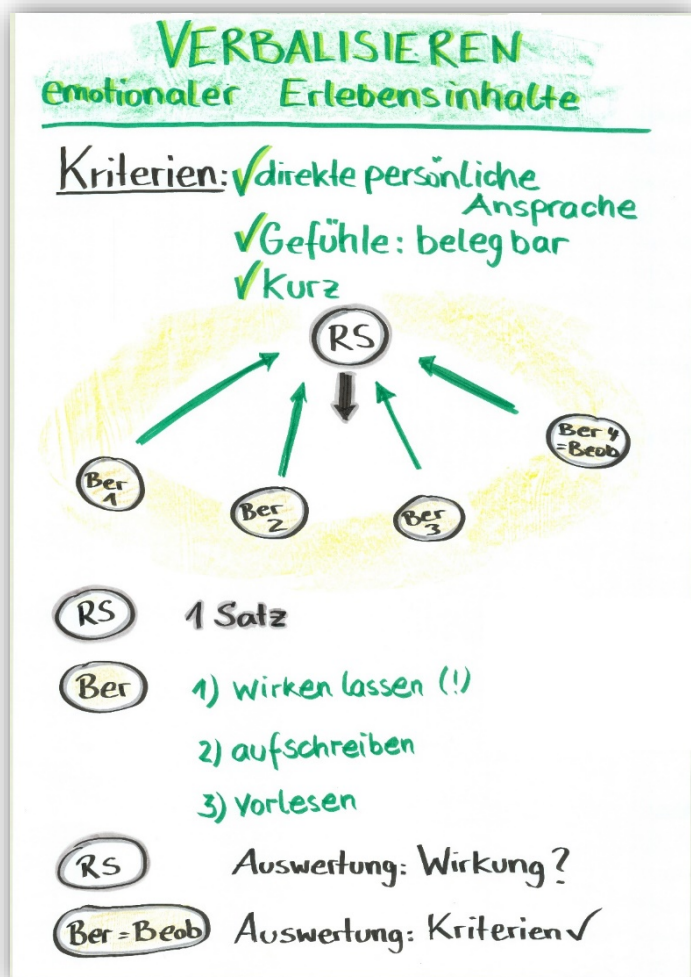 VERBALISIEREN
emotionaler Erlebensinhalte
Kriterien: ✓direkte persönliche
Ansprache
✓Gefühle: belegbar
✓Kurz
RS
Ber 4
=Beob
Ber
1
Ber
2
Ber
3
RS 1 Satz
Ber 1) wirken lassen (!)
2) aufschreiben
3) Vorlesen
RS Auswertung: Wirkung?
Ber=Beob Auswertung: Kriterien✓